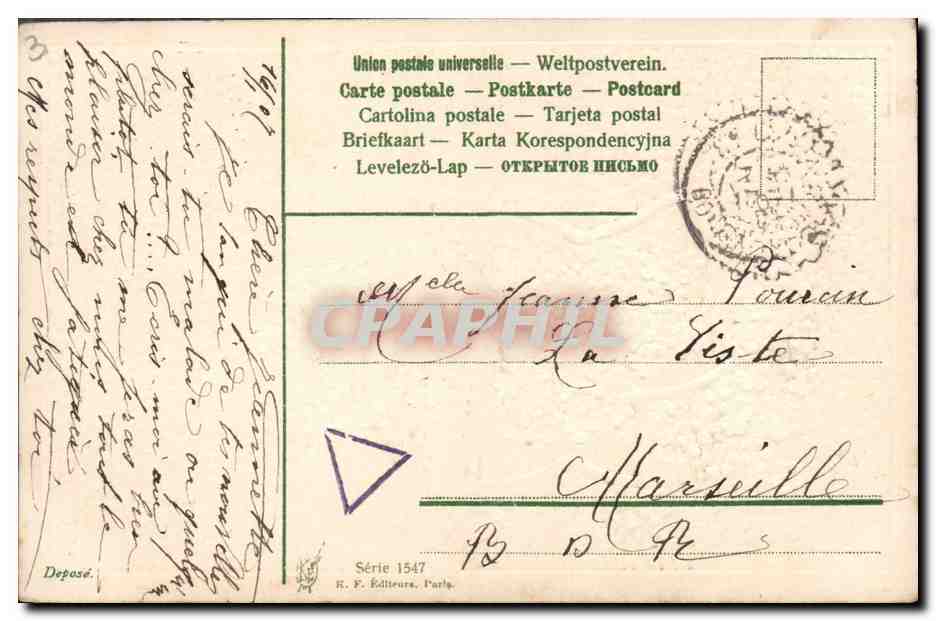 Union postale universelle — Weltpostverein.
Carte postale — Postkarte — Postcard
Cartolina postale — Tarjeta postal
Briefkaart — Karta Korespondencyjna
Levelező-Lap — ОТКРЫТОЕ ПИСЬМО
3
Chère Jeannette
Je langui de tes nouvelles
serais-tu malade ou quelqu'un
chez toi... Écris-moi au
plutôt, tu me feras
plaisir chez nous tout le
monde est fatigué
Mes respects chez toi
Melle Jeanne Pourcin
La Viste
Marseille
B D R
CPAPHIL
Deposé.
Série 1547
K. F. Éditeurs, Paris.